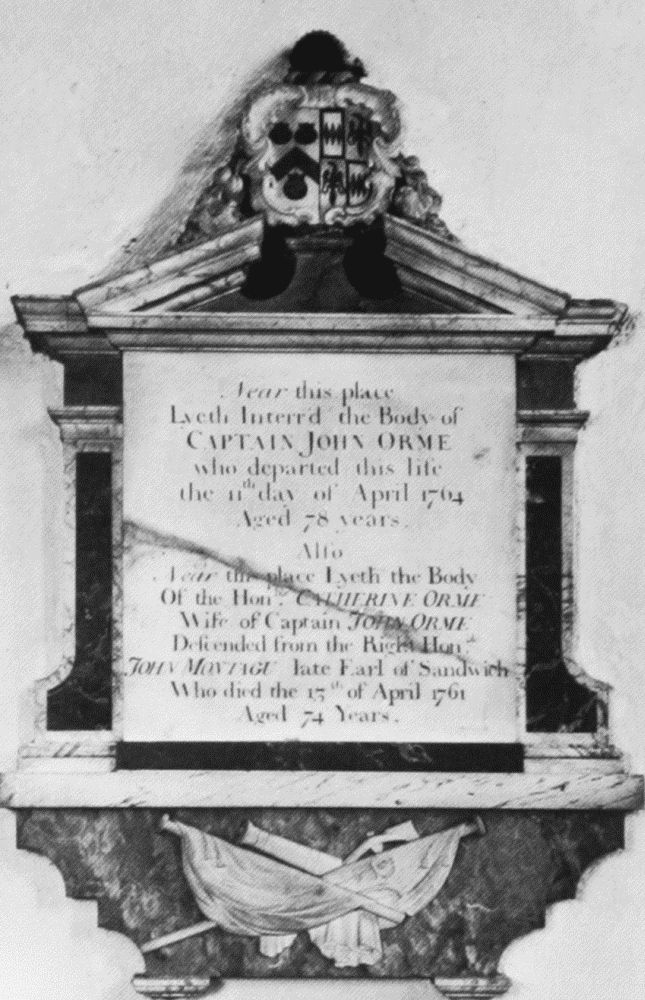 Near this place
Lyeth Interr'd the Body of
CAPTAIN JOHN ORME
who departed this life
the 11th day of April 1764
Aged 78 years.
Alſo
Near this place Lyeth the Body
Of the Hon. CATHERINE ORME
Wife of Captain JOHN ORME
Deſcended from the Right Hon.
JOHN MONTAGU late Earl of Sandwich
Who died the 13th of April 1761
Aged 74 Years.